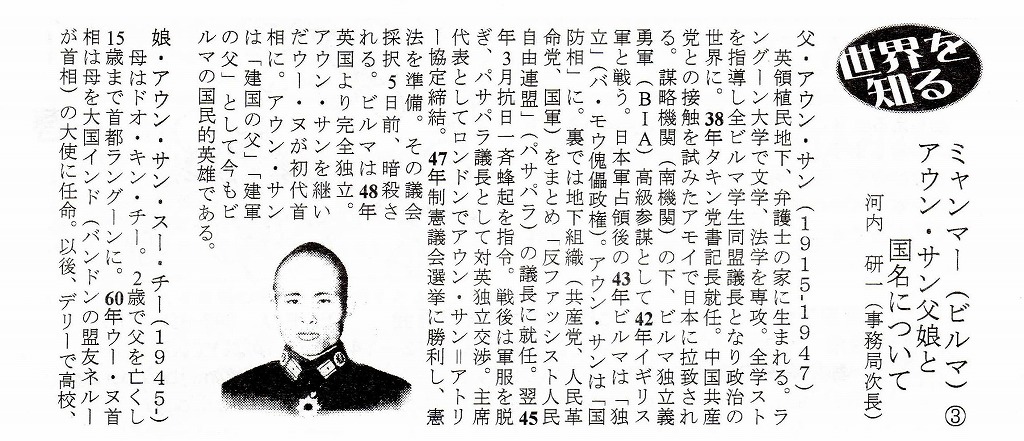 世界を
知る
ミャンマー(ビルマ) ③
アウン・サン父娘と
国名について
河内 研一(事務局次長)
父・アウン・サン(1915-1947)
英領植民地下、弁護士の家に生まれる。ラ
ングーン大学で文学、法学を専攻。全学スト
を指導し全ビルマ学生同盟議長となり政治の
世界に。38年タキン党書記長就任。中国共産
党との接触を試みたアモイで日本に拉致され
る。謀略機関(南機関)の下、ビルマ独立義
勇軍(BIA)高級参謀として42年イギリス
軍と戦う。日本軍占領後の43年ビルマは「独
立」(バ・モウ傀儡政権)。アウン・サンは「国
防相」に。裏では地下組織(共産党、人民革
命党、国軍)をまとめ「反ファッシスト人民
自由連盟」(パサパラ)の議長に就任。翌45
年3月抗日一斉蜂起を指令。戦後は軍服を脱
ぎ、パサパラ議長として対英独立交渉。主席
代表としてロンドンでアウン・サン=アトリ
ー協定締結。47年制憲議会選挙に勝利し、憲
法を準備。その議会
採択5日前、暗殺さ
れる。ビルマは48年
英国より完全独立。
アウン・サンを継い
だウー・ヌが初代首
相に。アウン・サン
は「建国の父」「建軍
の父」として今もビ
ルマの国民的英雄である。
娘・アウン・サン・スー・チー(1945-)
母はドオ・キン・チー。2歳で父を亡くし
15歳まで首都ラングーンに。60年ウー・ヌ首
相は母を大国インド(バンドンの盟友ネルー
が首相)の大使に任命。以後、デリーで高校、